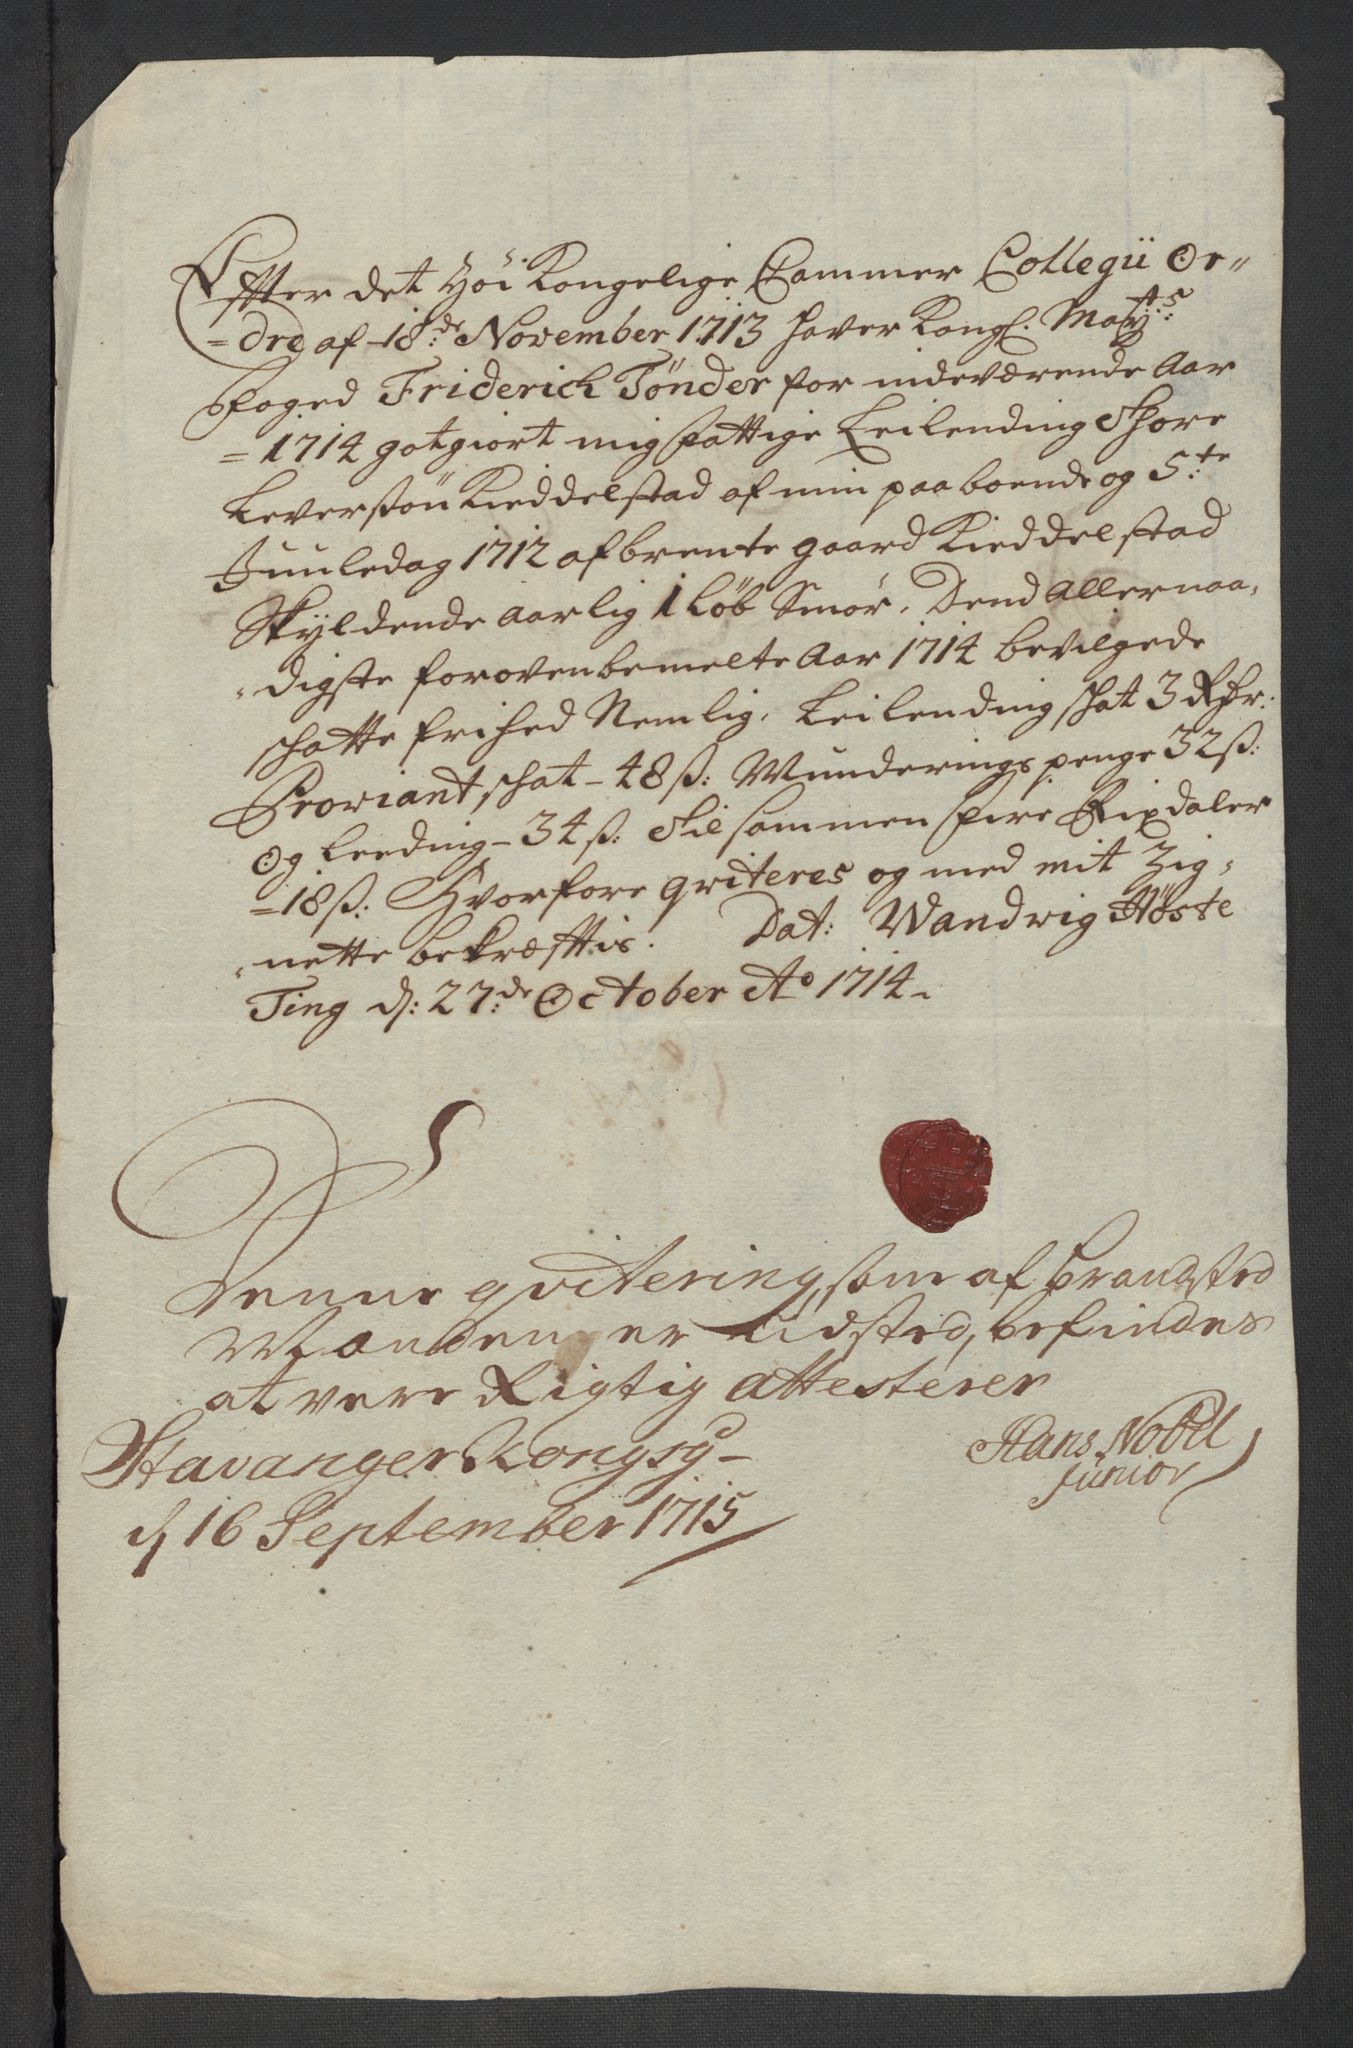 Efter det Höi Kongelige Cammer Collegii Or"
=dre af 18:de November 1713 haver Kongl. May:ts
Foged Friderich Tønder for indeværende Aar
=1714 gotgiort mig fattige Leilending Thore
Leversøn Kieddelstad af min paaboende og 5:te
Juuledag 1712 afbrente gaard Kieddelstad
Skyldende aarlig 1 Löb Smör. Dend Allernaa"
"digste forovenbemelte Aar 1714 bevilgede
schatte frihed Nemlig, Leilending schat 3 Rdr:
Proviant schat - 48 ß: Munderings penge 32 ß:
Og Leeding - 34 ß: Til sammen fire Rixdaler
=18 ß: Hvorfore qviteres og med mit Zig"
"nette bekræfftis. Dat: Wandvig Høste
Ting d: 27:de October Ao 1714.
Denne qvitering, som af brandsted
Manden er udsted, befindes
at vere Rigtig attesterer
Stavanger Kongsg-
d 16 September 1715
Hans Nobel
junior